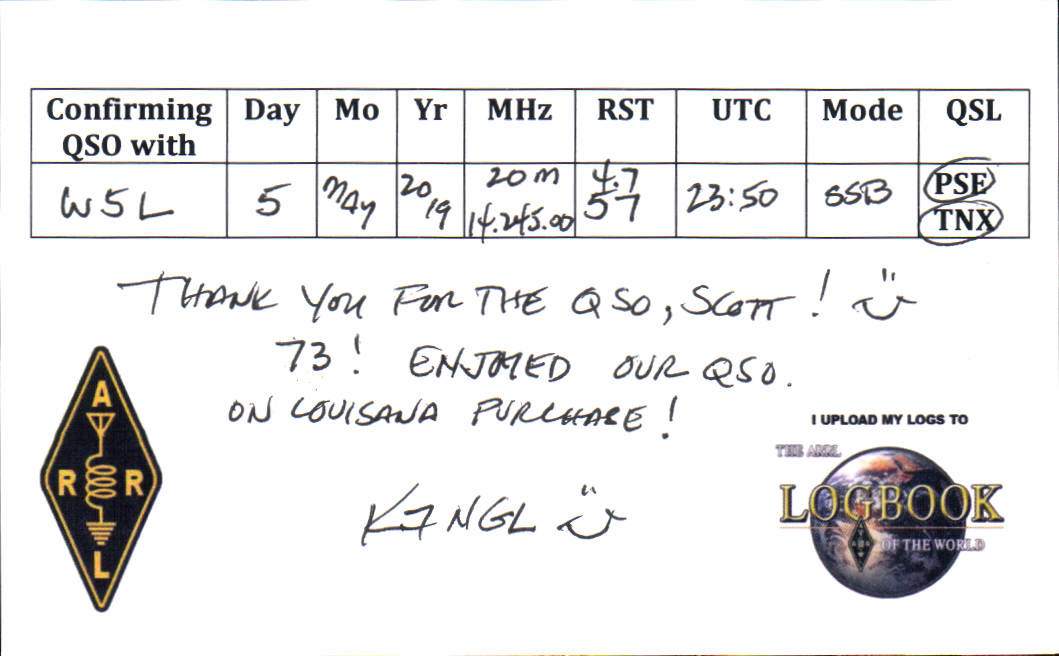 Confirming QSO with Day Mo Yr MHz RST UTC Mode QSL
W5L 5 May 20 19 20m 14.245.00 4.7 57 23:50 SSB PSE TNX
THANK YOU FOR THE QSO, SCOTT!
73! ENJOYED OUR QSO.
ON LOUISANA PURCHASE!
I UPLOAD MY LOGS TO
THE ARRL
LOGBOOK
OF THE WORLD
A
R R
L
K7NGL